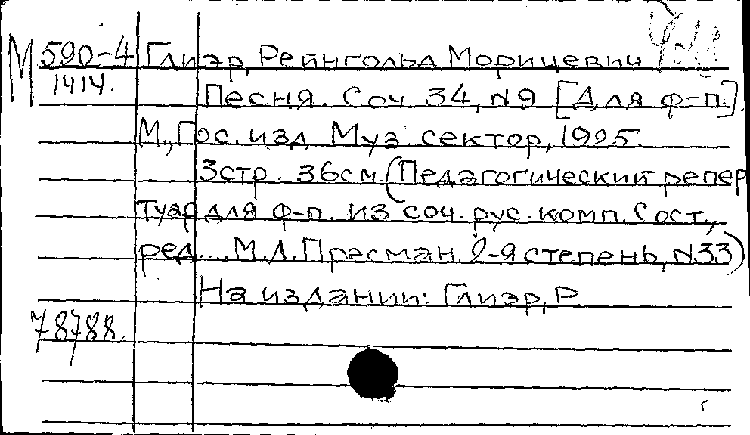 М 590-4 Глиэр, Рейнгольд Морицевич
1414.
Песня. Соч 34, N9 [Для ф-п.]
М., Гос. изд Муз сектор, 1925.
3стр. 36см. (Педагогический репер
туар для ф-п. из соч. рус. комп. Сост.,
ред.... М.Л. Пресман 2-я степень, N33)
На издании: Глиэр, Р
78788.